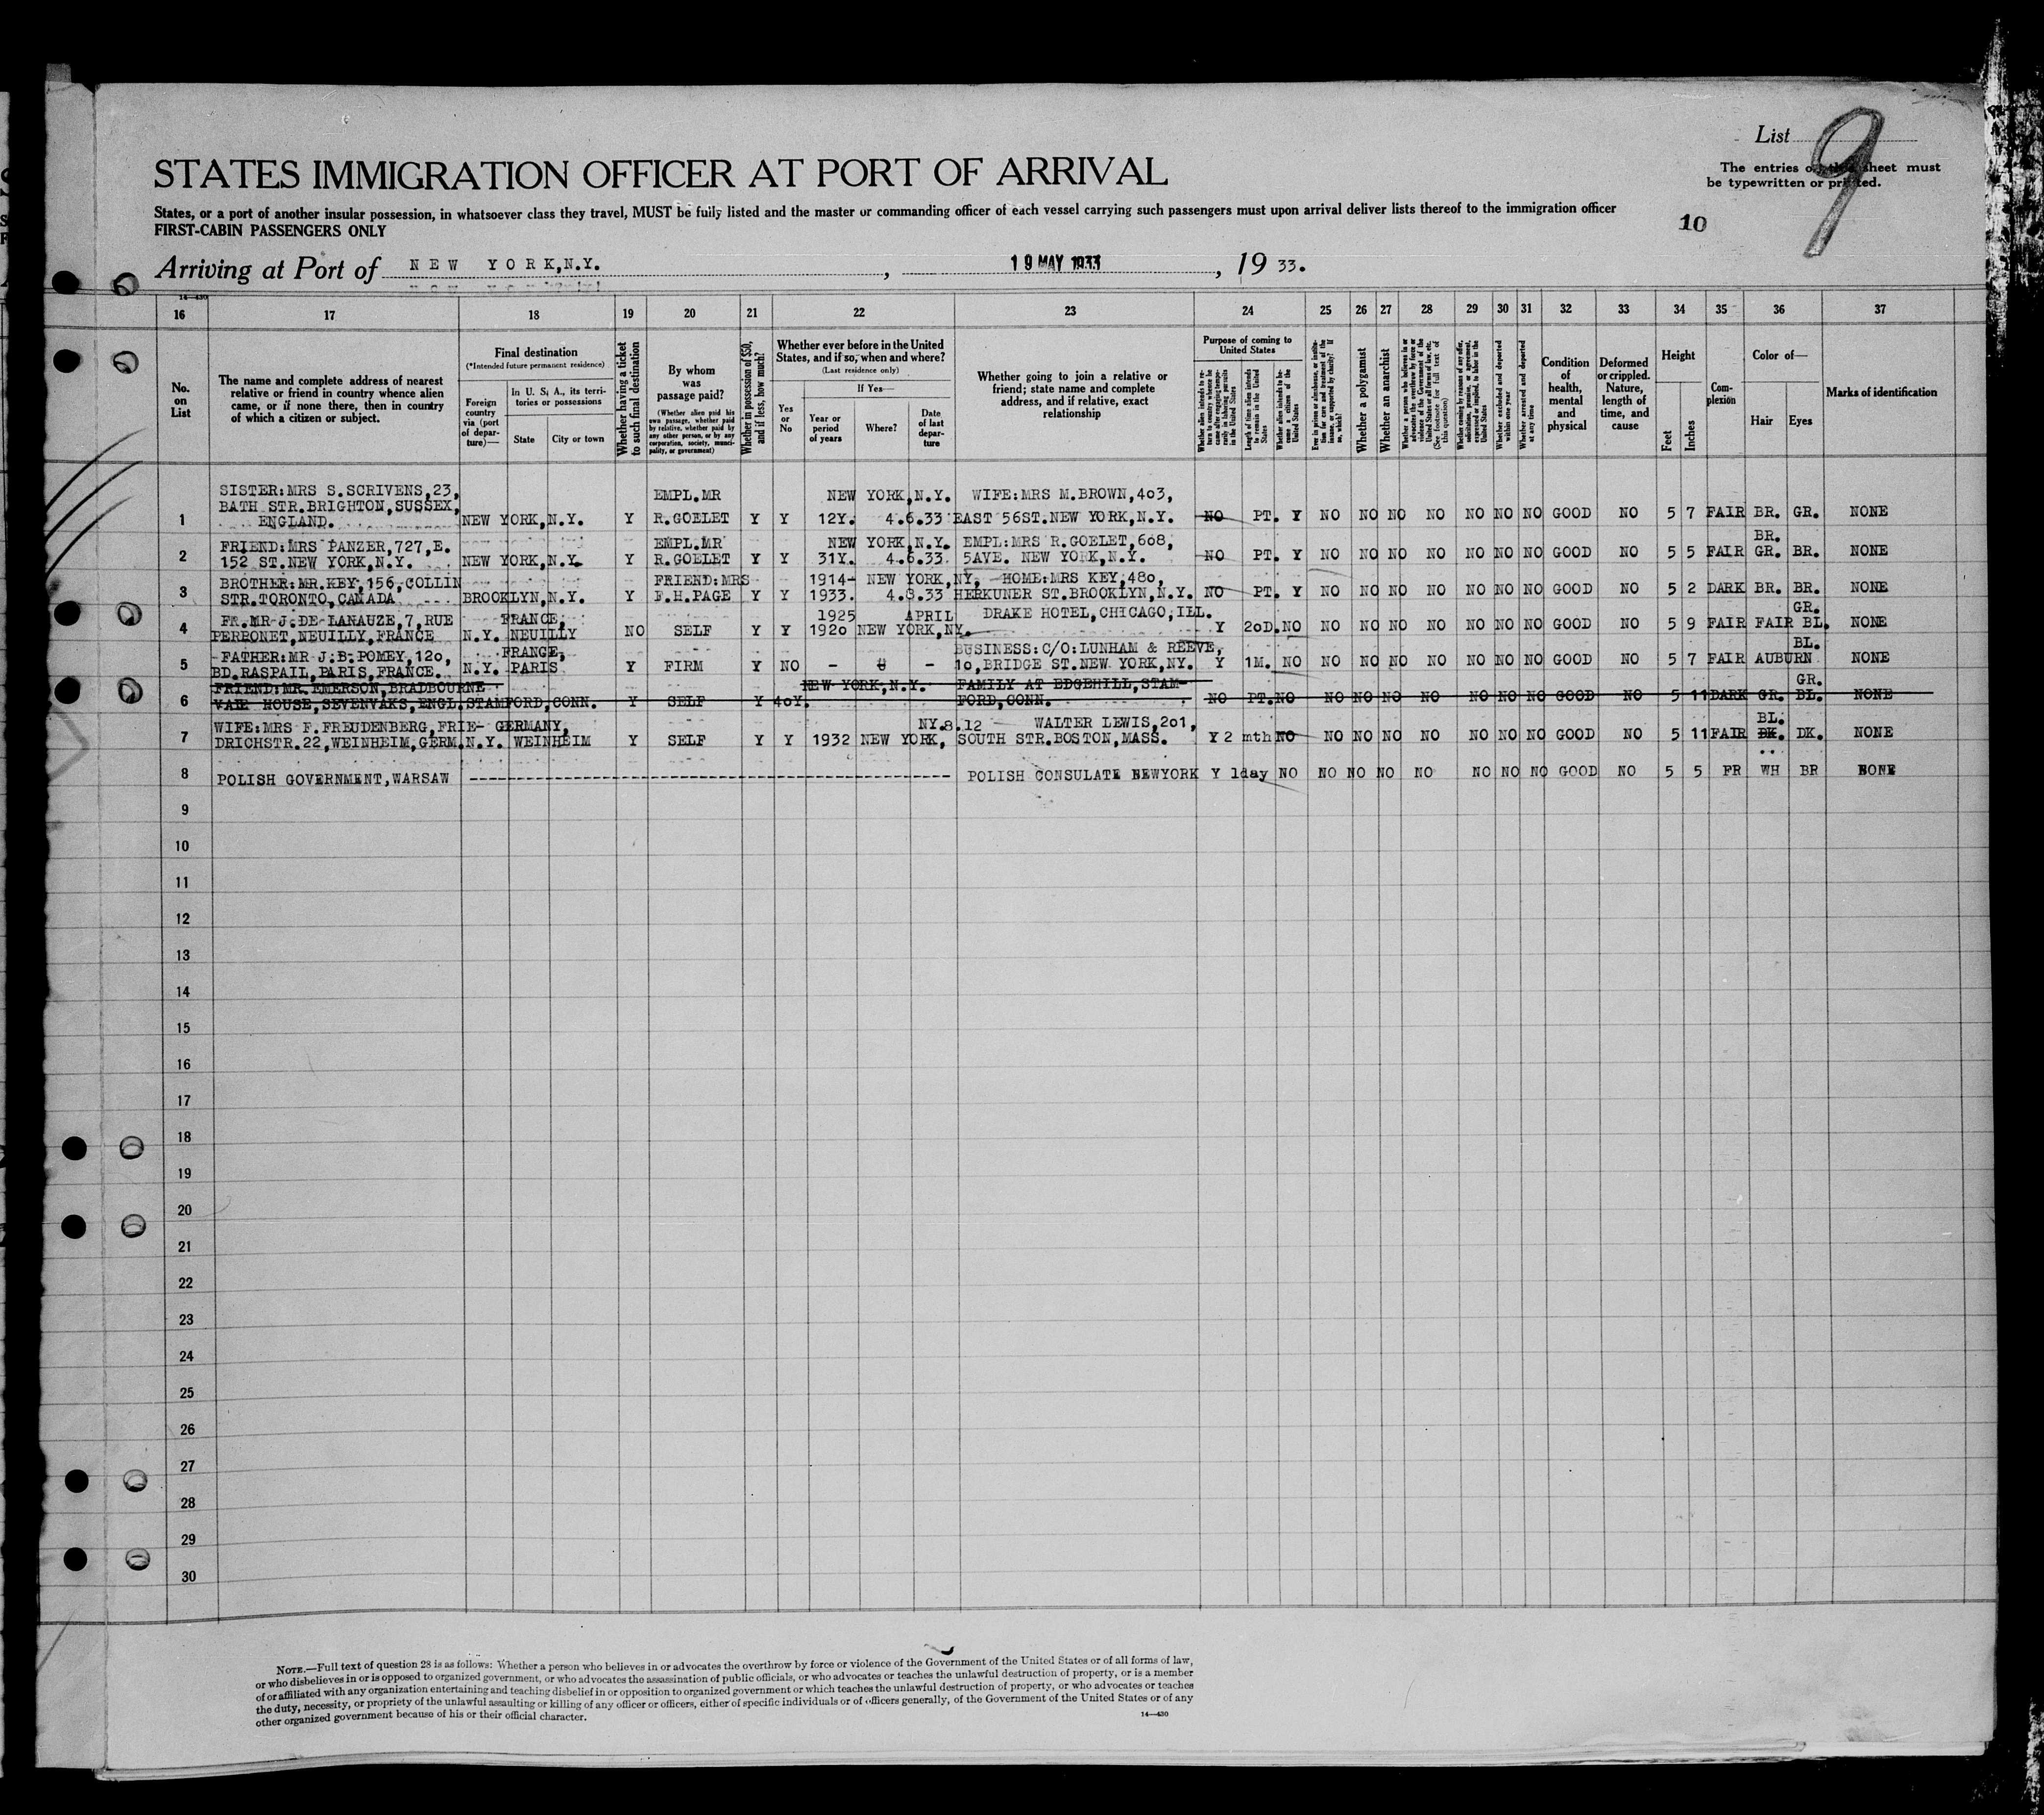 List 9
The entries on this sheet must
be typewritten or printed.
STATES IMMIGRATION OFFICER AT PORT OF ARRIVAL
States, or a port of another insular possession, in whatsoever class they travel, MUST be fully listed and the master or commanding officer of each vessel carrying such passengers must upon arrival deliver lists thereof to the immigration officer
FIRST-CABIN PASSENGERS ONLY
10
Arriving at Port of NEW YORK, N.Y., 19 MAY 1933, 1933.
14—430
16 17 18 19 20 21 22 23 24 25 26 27 28 29 30 31 32 33 34 35 36 37
No. on List
The name and complete address of nearest relative or friend in country whence alien came, or if none there, then in country of which a citizen or subject.
Final destination
(*Intended future permanent residence)
Foreign country via (port of departure)—
In U. S. A., its territories or possessions
State
City or town
Whether having a ticket to such final destination
By whom was passage paid?
(Whether alien paid his own passage, whether paid by relative, whether paid by any other person, or by any corporation, society, municipality, or government)
Whether in possession of $50, and if less, how much?
Whether ever before in the United States, and if so, when and where?
(Last residence only)
Yes or No
If Yes—
Year or period of years
Where?
Date of last departure
Whether going to join a relative or friend; state name and complete address, and if relative, exact relationship
Purpose of coming to United States
Length of time alien intends to remain in the United States
Whether alien intends to become a citizen of the United States
Whether a polygamist
Whether an anarchist
Whether excluded and deported within one year
Whether arrested and deported at any time
Condition of health, mental and physical
Deformed or crippled. Nature, length of time, and cause
Height
Feet
Inches
Complexion
Color of—
Hair
Eyes
Marks of identification
SISTER:MRS S.SCRIVENS,23, EMPL.MR NEW YORK,N.Y. WIFE:MRS M.BROWN,403,
BATH STR.BRIGHTON,SUSSEX,
1 ENGLAND. NEW YORK,N.Y. Y R.GOELET Y Y 12Y. 4.6.33 EAST 56ST.NEW YORK,N.Y. NO PT. Y NO NO NO NO NO NO NO GOOD NO 5 7 FAIR BR. GR. NONE
FRIEND:MRS PANZER,727,E. EMPL.MR NEW YORK,N.Y. EMPL:MRS R.GOELET,608, BR.
2 152 ST.NEW YORK,N.Y. NEW YORK,N.Y. Y R.GOELET Y Y 31Y. 4.6.33. 5AVE. NEW YORK,N.Y. NO PT. Y NO NO NO NO NO NO NO GOOD NO 5 5 FAIR GR. BR. NONE
BROTHER:MR.KEY,156,COLLIN FRIEND:MRS 1914- NEW YORK,NY, HOME:MRS KEY,480,
3 STR.TORONTO,CANADA BROOKLYN,N.Y. Y F.H.PAGE Y Y 1933. HERKUNER ST.BROOKLYN,N.Y. NO PT. Y NO NO NO NO NO NO NO GOOD NO 5 2 DARK BR. BR. NONE
FR.MR J.DE LANAUZE,7,RUE FRANCE, 1925 APRIL DRAKE HOTEL,CHICAGO,ILL. GR.
4 PERRONET,NEUILLY,FRANCE N.Y. NEUILLY NO SELF Y Y 1920 NEW YORK,NY. Y 20D. NO NO NO NO NO NO NO NO GOOD NO 5 9 FAIR FAIR BL. NONE
FATHER:MR J.B.POMEY,120, FRANCE, BUSINESS:C/O:LUNHAM & REEVE, BL.
5 BD.RASPAIL,PARIS,FRANCE. N.Y. PARIS Y FIRM Y NO - - 10,BRIDGE ST.NEW YORK,NY. Y 1M. NO NO NO NO NO NO NO NO GOOD NO 5 7 FAIR AUBURN NONE
FRIEND:MR.EMERSON,BRADBOURNE NEW YORK,N.Y. FAMILY AT EDGEHILL,STAM- GR.
6 VALE HOUSE,SEVENVAKS,ENGL. STAMFORD,CONN. Y SELF Y 40Y. FORD,CONN. NO PT. NO NO NO NO NO NO NO NO GOOD NO 5 11 DARK GR. BL. NONE
WIFE:MRS F.FREUDENBERG,FRIE- GERMANY, NY.8.12 WALTER LEWIS,201, BL.
7 DRICHSTR.22,WEINHEIM,GERM. N.Y. WEINHEIM Y SELF Y Y 1932 NEW YORK, SOUTH STR.BOSTON,MASS. Y 2 mth NO NO NO NO NO NO NO NO GOOD NO 5 11 FAIR DK. DK. NONE
8 POLISH GOVERNMENT,WARSAW ---------- POLISH CONSULATE NEWYORK Y 1day NO NO NO NO NO NO NO NO GOOD NO 5 5 FR WH BR NONE
9
10
11
12
13
14
15
16
17
18
19
20
21
22
23
24
25
26
27
28
29
30
NOTE.—Full text of question 28 is as follows: Whether a person who believes in or advocates the overthrow by force or violence of the Government of the United States or of all forms of law,
or who disbelieves in or is opposed to organized government, or who advocates the assassination of public officials, or who advocates or teaches the unlawful destruction of property, or is a member
of or affiliated with any organization entertaining and teaching disbelief in or opposition to organized government or which teaches the unlawful destruction of property, or who advocates or teaches
the duty, necessity, or propriety of the unlawful assaulting or killing of any officer or officers, either of specific individuals or of officers generally, of the Government of the United States or of any
other organized government because of his or their official character.
14—430